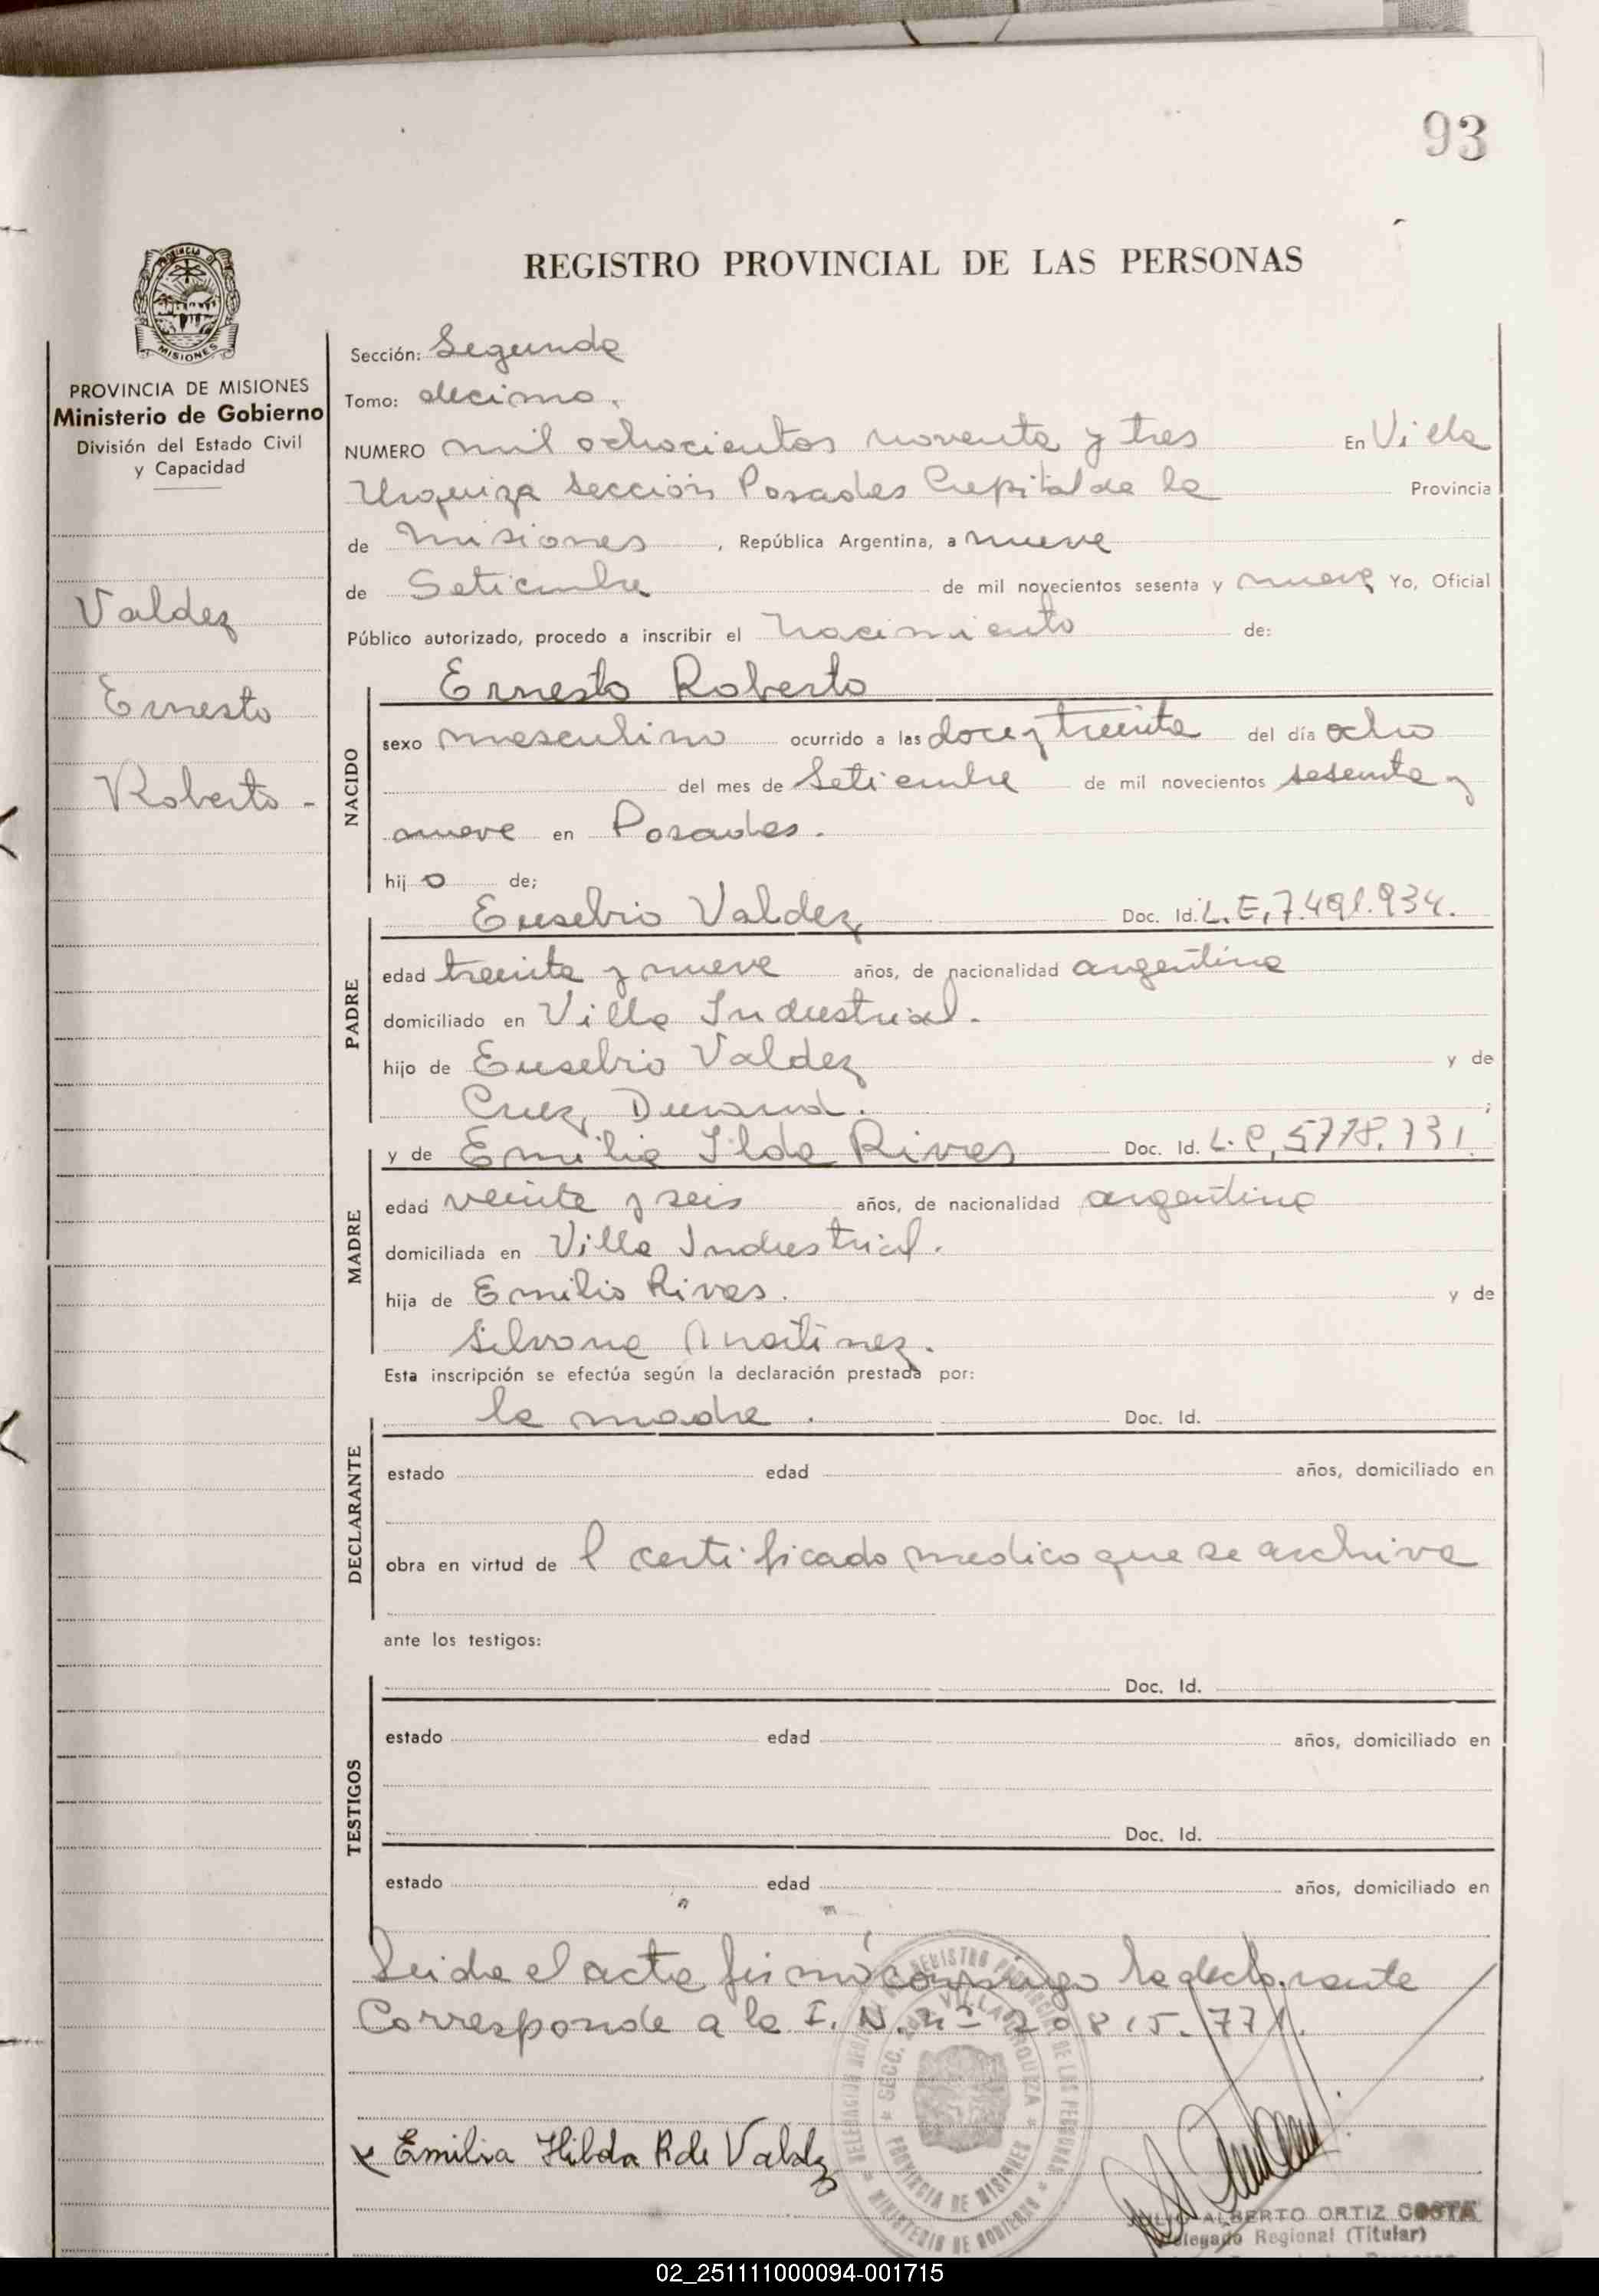 93
REGISTRO PROVINCIAL DE LAS PERSONAS
MISIONES
PROVINCIA DE MISIONES
Ministerio de Gobierno
División del Estado Civil
y Capacidad
Valdez
Ernesto
Roberto -
Sección: Segunda
Tomo: decimo.
NUMERO mil ochocientos noventa y tres En Villa
Urquiza Sección Posadas Capital de la Provincia
de Misiones , República Argentina, a nueve
de Setiembre de mil novecientos sesenta y nueve Yo, Oficial
Público autorizado, procedo a inscribir el Nacimiento de:
NACIDO
Ernesto Roberto
sexo masculino ocurrido a las doce y treinta del día ocho
del mes de Setiembre de mil novecientos sesenta y
nueve en Posadas.
hijo de;
PADRE
Eusebio Valdez Doc. Id. L.E. 7.491.934.
edad treinta y nueve años, de nacionalidad argentina
domiciliado en Villa Industrial.
hijo de Eusebio Valdez y de
Cruz Durand. ;
MADRE
y de Emilia Ilda Rivas Doc. Id. L.C. 5778.731.
edad veinte y seis años, de nacionalidad argentina
domiciliada en Villa Industrial.
hija de Emilio Rivas. y de
Silvana Martinez.
Esta inscripción se efectúa según la declaración prestada por:
DECLARANTE
la madre . Doc. Id.
estado edad años, domiciliado en
obra en virtud de l certificado medico que se archiva
ante los testigos:
TESTIGOS
Doc. Id.
estado edad años, domiciliado en
Doc. Id.
estado edad años, domiciliado en
Leida el acta firmó conmigo la declarante
Corresponde a la I. N. nº 20815.771.
Emilia Hilda R de Valdez
SECC. VILLA URQUIZA
PROVINCIA DE MISIONES
MINISTERIO DE GOBIERNO
ALBERTO ORTIZ COSTA
Delegado Regional (Titular)
02_251111000094-001715